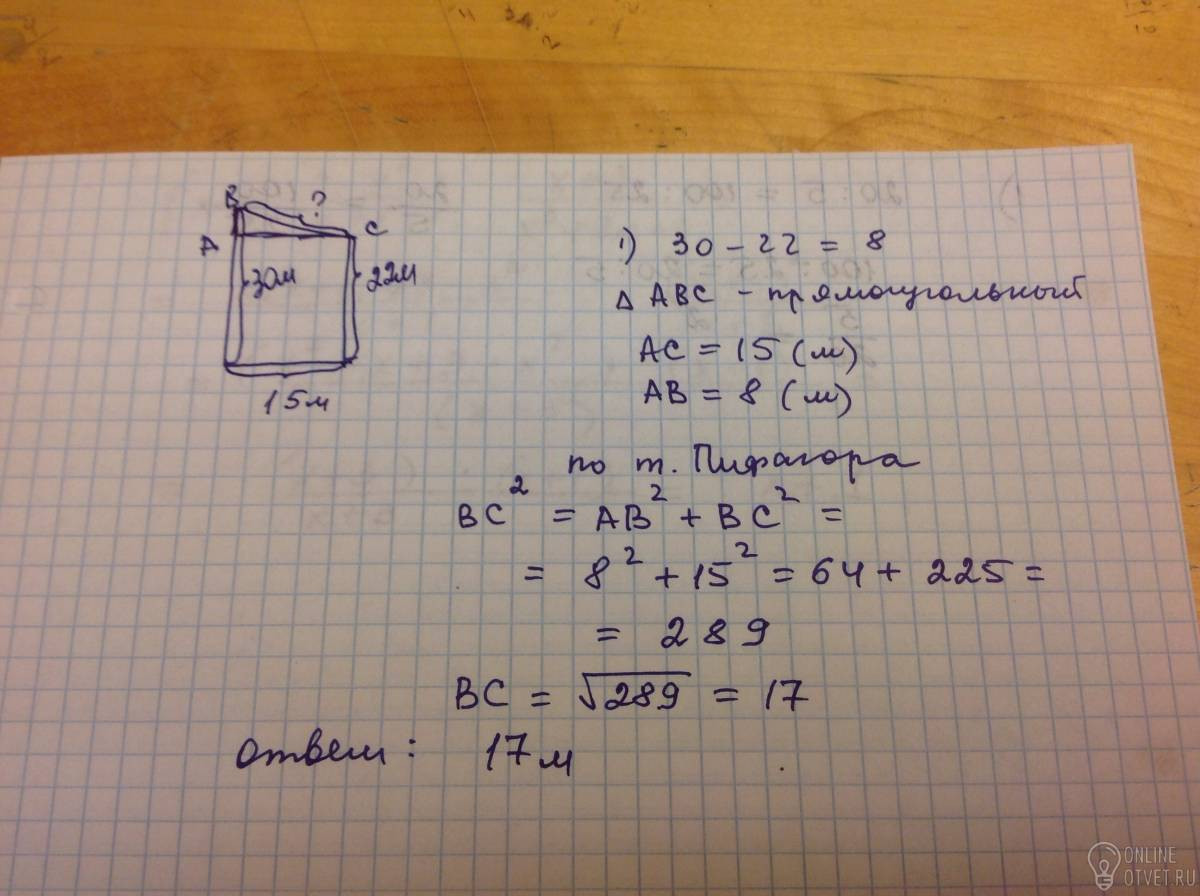 B ?
A C
30м 22м
15м
1) 30 - 22 = 8
Δ ABC - прямоугольный
AC = 15 (м)
AB = 8 (м)
по т. Пифагора
BC² = AB² + BC² =
= 8² + 15² = 64 + 225 =
= 289
BC = √289 = 17
ответ: 17м
ONLINE
OTVET.RU